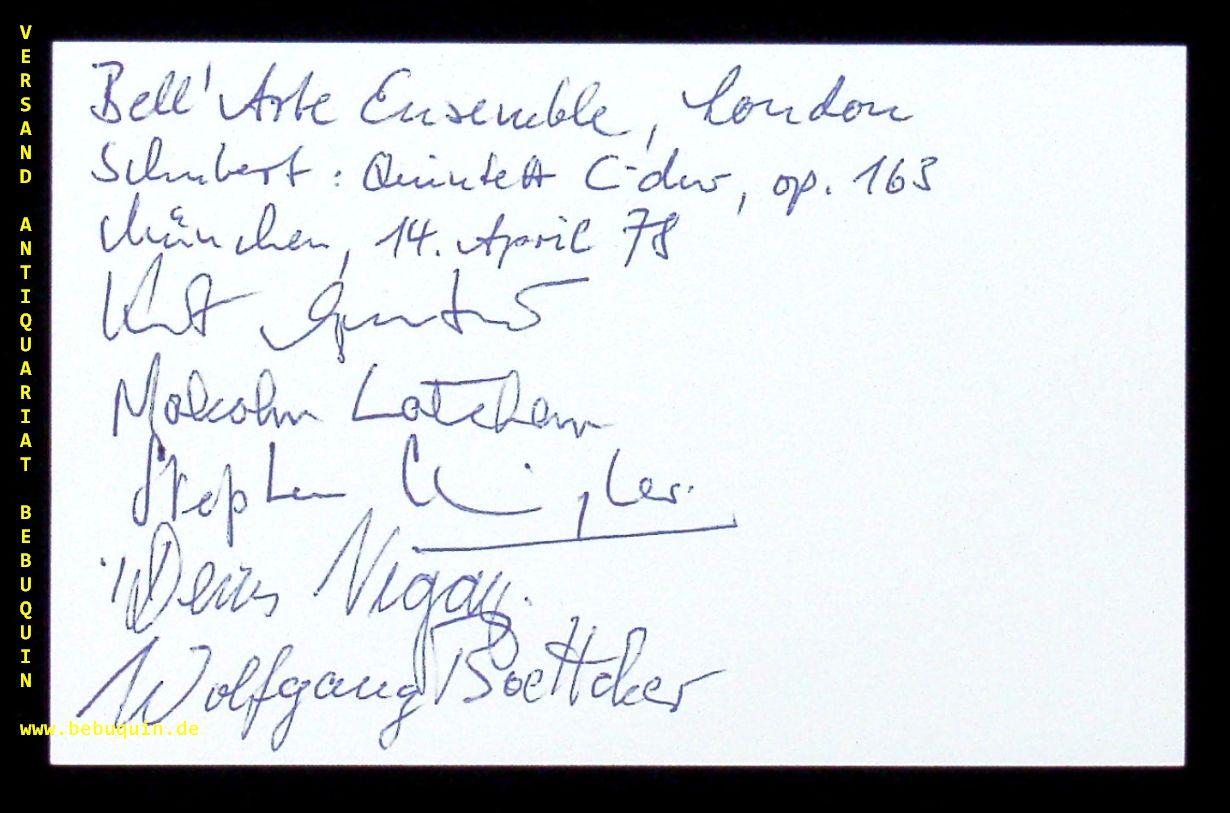 VERSAND ANTIQUARIAT BEBUQUIN
Bell'Arte Ensemble, London
Schubert: Quintett C-dur, op. 163
München, 14. April 78
Malcolm Latchem
Stephen
Denis Vigay.
Wolfgang Boettcher
www.bebuquin.de